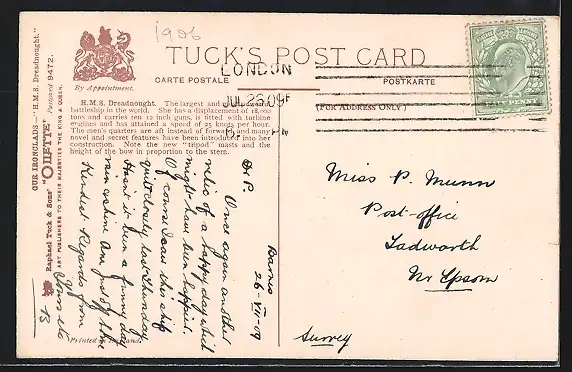 1906
TUCK'S POST CARD
CARTE POSTALE
POSTKARTE
(FOR ADDRESS ONLY.)
By Appointment.
LONDON
JUL 26 09
H.M.S. Dreadnought. The largest and
battleship in the world. She has a displacement of 18,000
tons and carries ten 12 inch guns, is fitted with turbine
engines and has attained a speed of 25 knots per hour.
The men's quarters are aft instead of forward, and many
novel and secret features have been introduced into her
construction. Note the new "tripod" masts and the
height of the bow in proportion to the stern.
OUR IRONCLADS—"H.M.S. Dreadnought."
Raphael Tuck & Sons' "OILETTE" Postcard 9472.
ART PUBLISHERS TO THEIR MAJESTIES THE KING & QUEEN.
Printed in
Barnes
26-VII-09
Dr P.
Once again another
relic of a happy day which
might have been happier.
Of course I saw this ship
quite closely last Saturday.
Hasn't it been a funny day
rain & shine
Kindest Regards from
Yours etc
B
Miss P. Munn
Post-office
Tadworth
Nr Epsom
Surrey